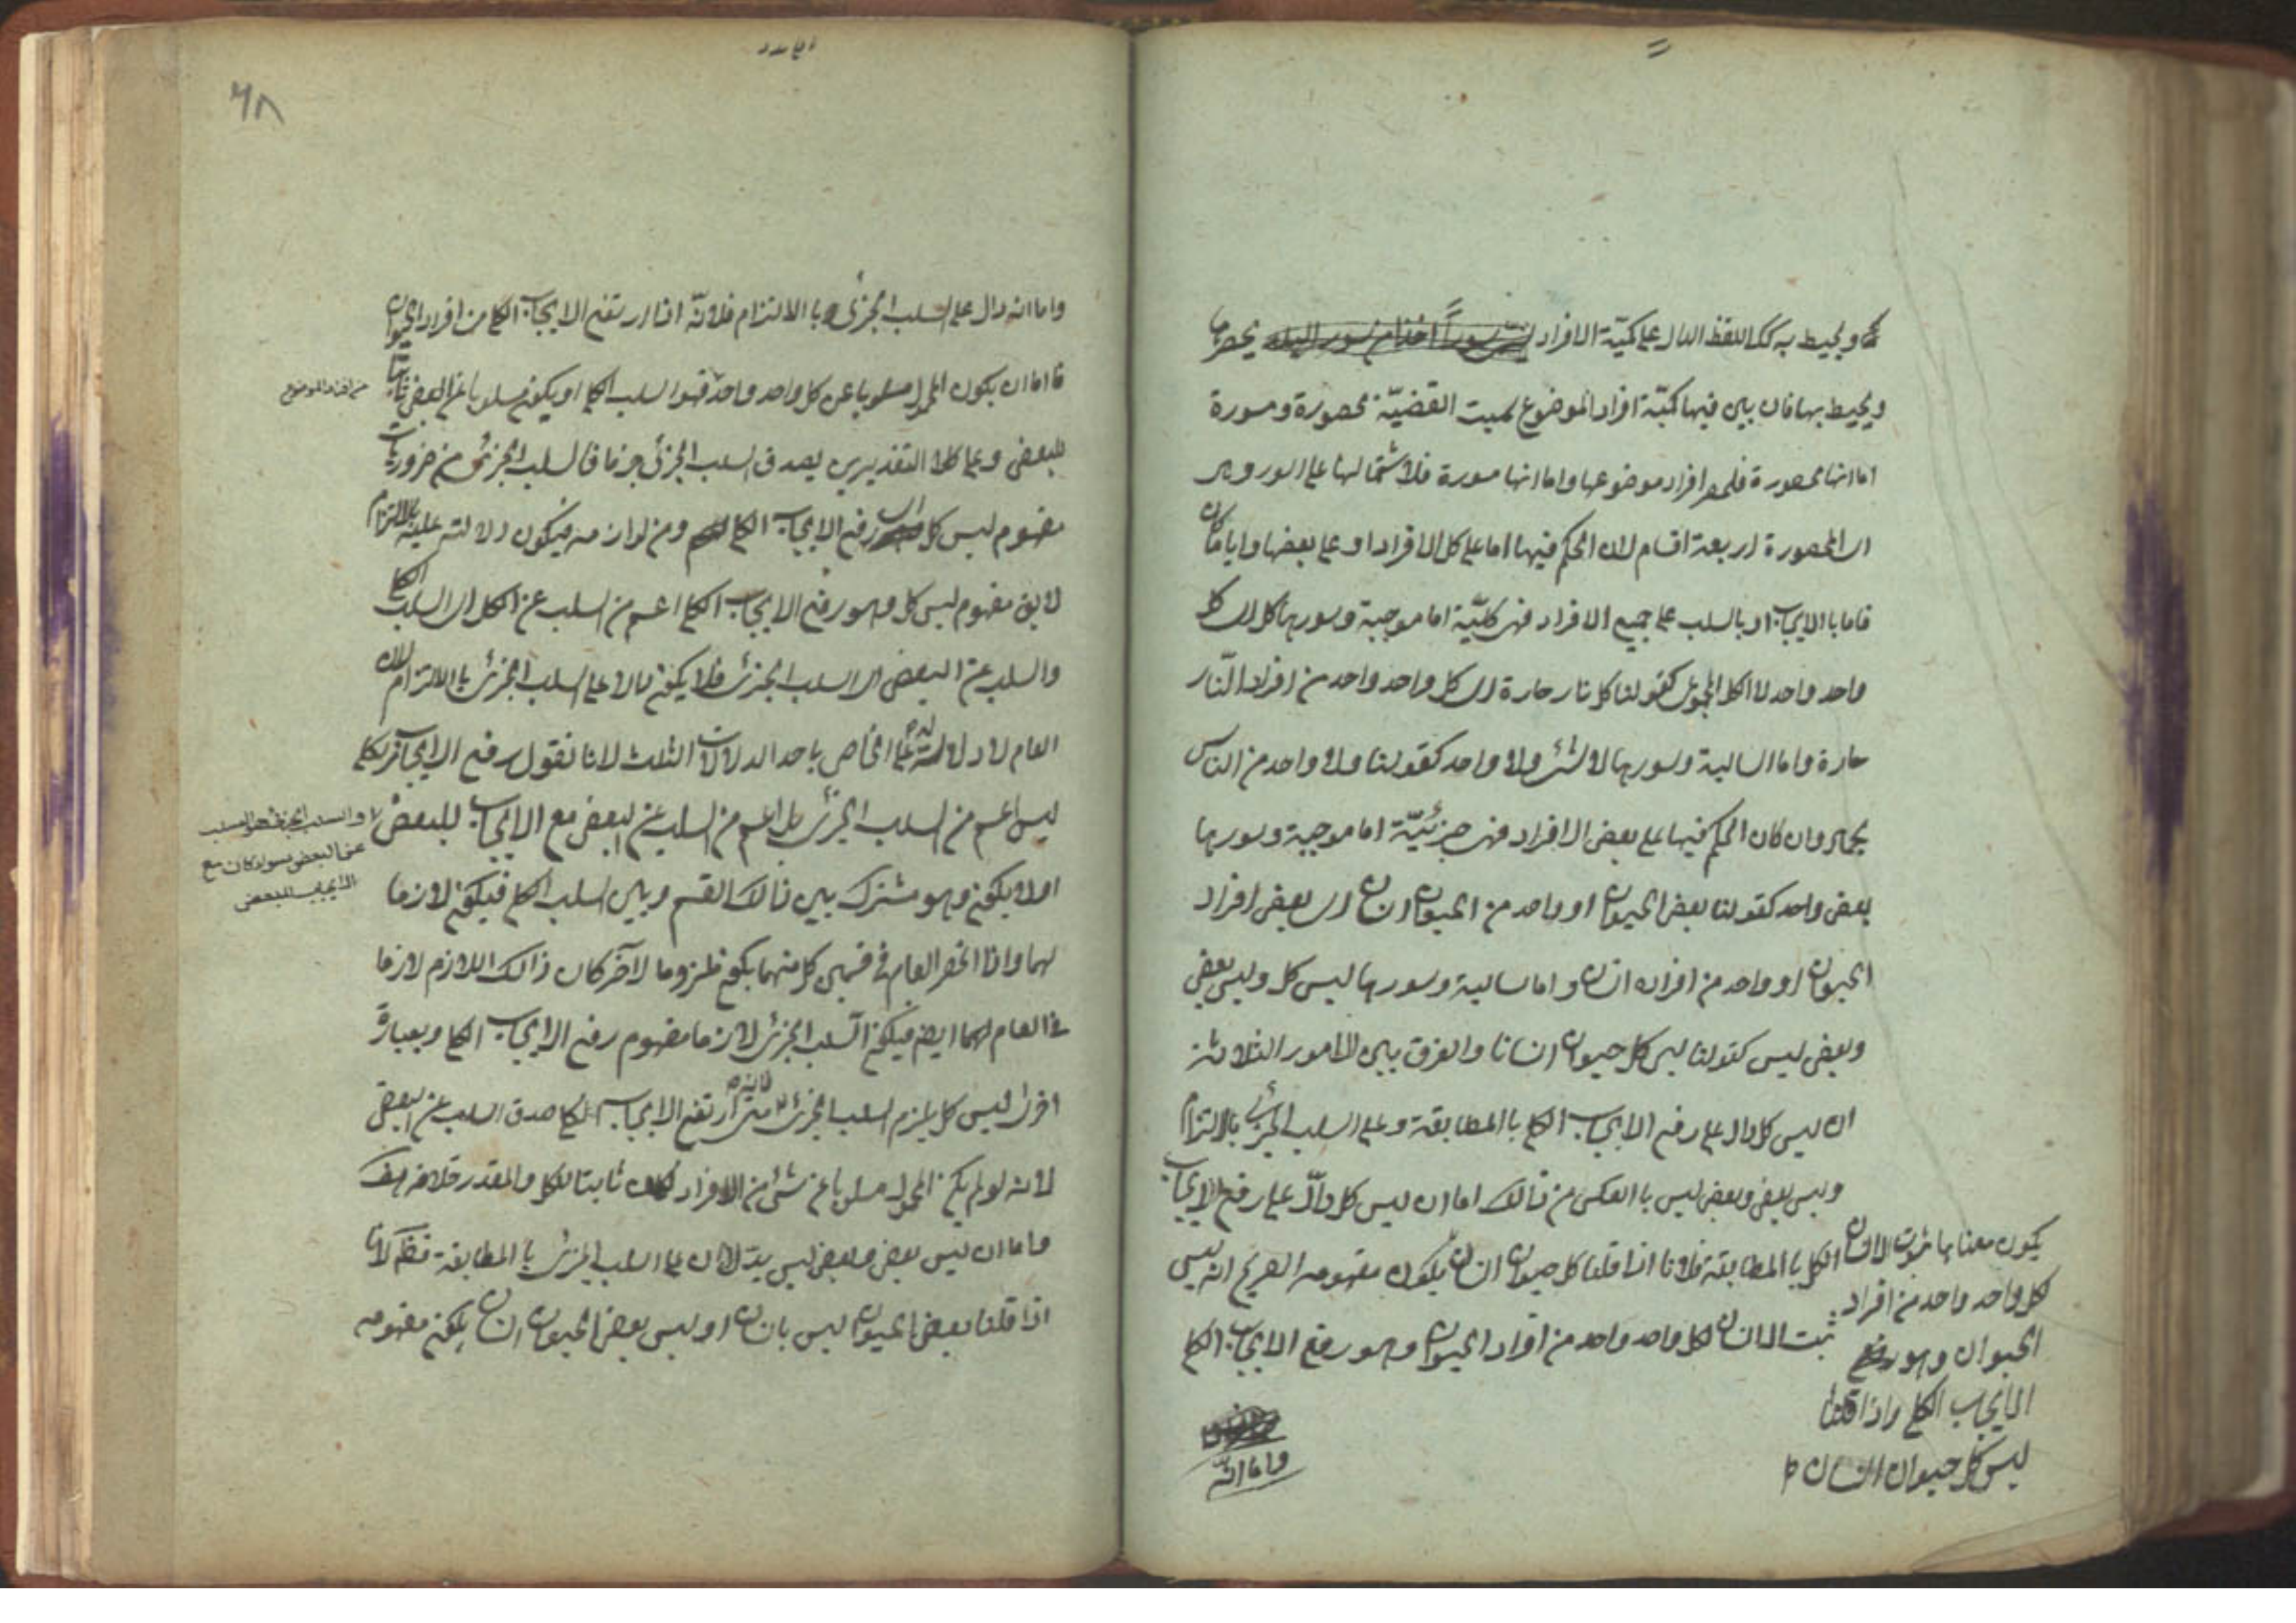 ويحيط به كك اللفظ الدال على كميّة الافراد يحصرها
ويحيط بها فان بين فيها كميّة افراد الموضوع سميت القضيّة محصورة ومسورة
اما انها محصورة فلحصر افراد موضوعها واما انها مسورة فلاشتمالها على السور وهى
اى المحصورة اربعة اقسام لان الحكم فيها اما على كل الافراد او على بعضها وايا ما كان
فاما با الايجاب او بالسلب على جميع الافراد فهى كليّة اما موجبة وسورها كل اى كل
واحد واحد لا الكل المجموعى كقولنا كل نار حارة اى كل واحد واحد من افراد النّار
حارة واما السالبة وسورها لا شئ ولا واحد كقولنا ولا واحد من الناس
بجماد وان كان الحكم فيها على بعض الافراد فهى جزئيّة اما موجبة وسورها
بعض واحد كقولنا بعض الحيوان او واحد من الحيوان انسان اى بعض افراد
الحيوان او واحد من افراده انسان واما سالبة وسورها ليس كل وليس بعض
وبعض ليس كقولنا ليس كل حيوان انسانا والفرق بين الامور الثلاثة
ان ليس كل دال على رفع الايجاب الكلى با المطابقة وعلى السلب الجزئى بالالتزام
وليس بعض وبعض ليس با العكس من ذالك اما ان ليس كل دالّ على رفع الايجاب
الكلى با المطابقة فلانا اذا قلنا كل حيوان انسان يكون مفهومه الصريح انه ليس
ثبت الانسان لكل واحد واحد من افراد الحيوان وهو رفع الايجاب الكلى
يكون معناها ثبوت الانسان
لكل واحد واحد من افراد
الحيوان وهو
الايجاب الكلى واذا قلنا
ليس كل حيوان انسان
واما انّه
٦٨
واما انه دال على السلب الجزئى با الالتزام فلانّه اذا ارتفع الايجاب الكلى من افراد الحيوان
فاما ان يكون المحمول مسلوبا عن كل واحد واحد فهو السلب الكلى او يكون مسلوبا عن البعض ثابتا
من افراد الموضوع
للبعض وعلى كلا التقديرين يصدق السلب الجزئى جزما فالسلب الجزئى من ضروريات
مفهوم ليس كل اى رفع الايجاب الكلى ومن لوازمه فيكون دلالته عليه بالالتزام
لا يق مفهوم ليس كل وهو رفع الايجاب الكلى اعم من السلب عن الكل اى السلب الكلى
والسلب عن البعض اى السلب الجزئى فلا يكون دالا على السلب الجزئى با الالتزام لان
العام لا دلالة له على الخاص باحد الدلالات الثلث لانا نقول رفع الايجاب الكلى
ليس اعم من السلب الجزئى بل اعم من السلب عن البعض مع الايجاب للبعض
والسلب الجزئى هو السلب
عن البعض سواء كان مع
الايجاب للبعض
اولا يكون وهو مشترك بين ذالك القسم وبين السلب الكلى فيكون لازما
لهما واذا انحصر العام فى قسمين كل منهما يكون ملزوما لاخر كان ذالك اللازم لازما
فى العام لهما ايض فيكون السلب الجزئى لازما مفهوم رفع الايجاب الكلى وبعبارة
اخرى ليس كل يلزم السلب الجزئى متى ارتفع الايجاب الكلى صدق السلب عن البعض
لانه لو لم يكن المحمول مسلوبا عن شئ من الافراد لكان ثابتا للكل والمقدر خلافه هف
واما ان ليس بعض وبعض ليس يدلان على السلب الجزئى با المطابقة فظ لانا
اذا قلنا بعض الحيوان ليس بانسان او ليس بعض الحيوان انسان يكون مفهومه